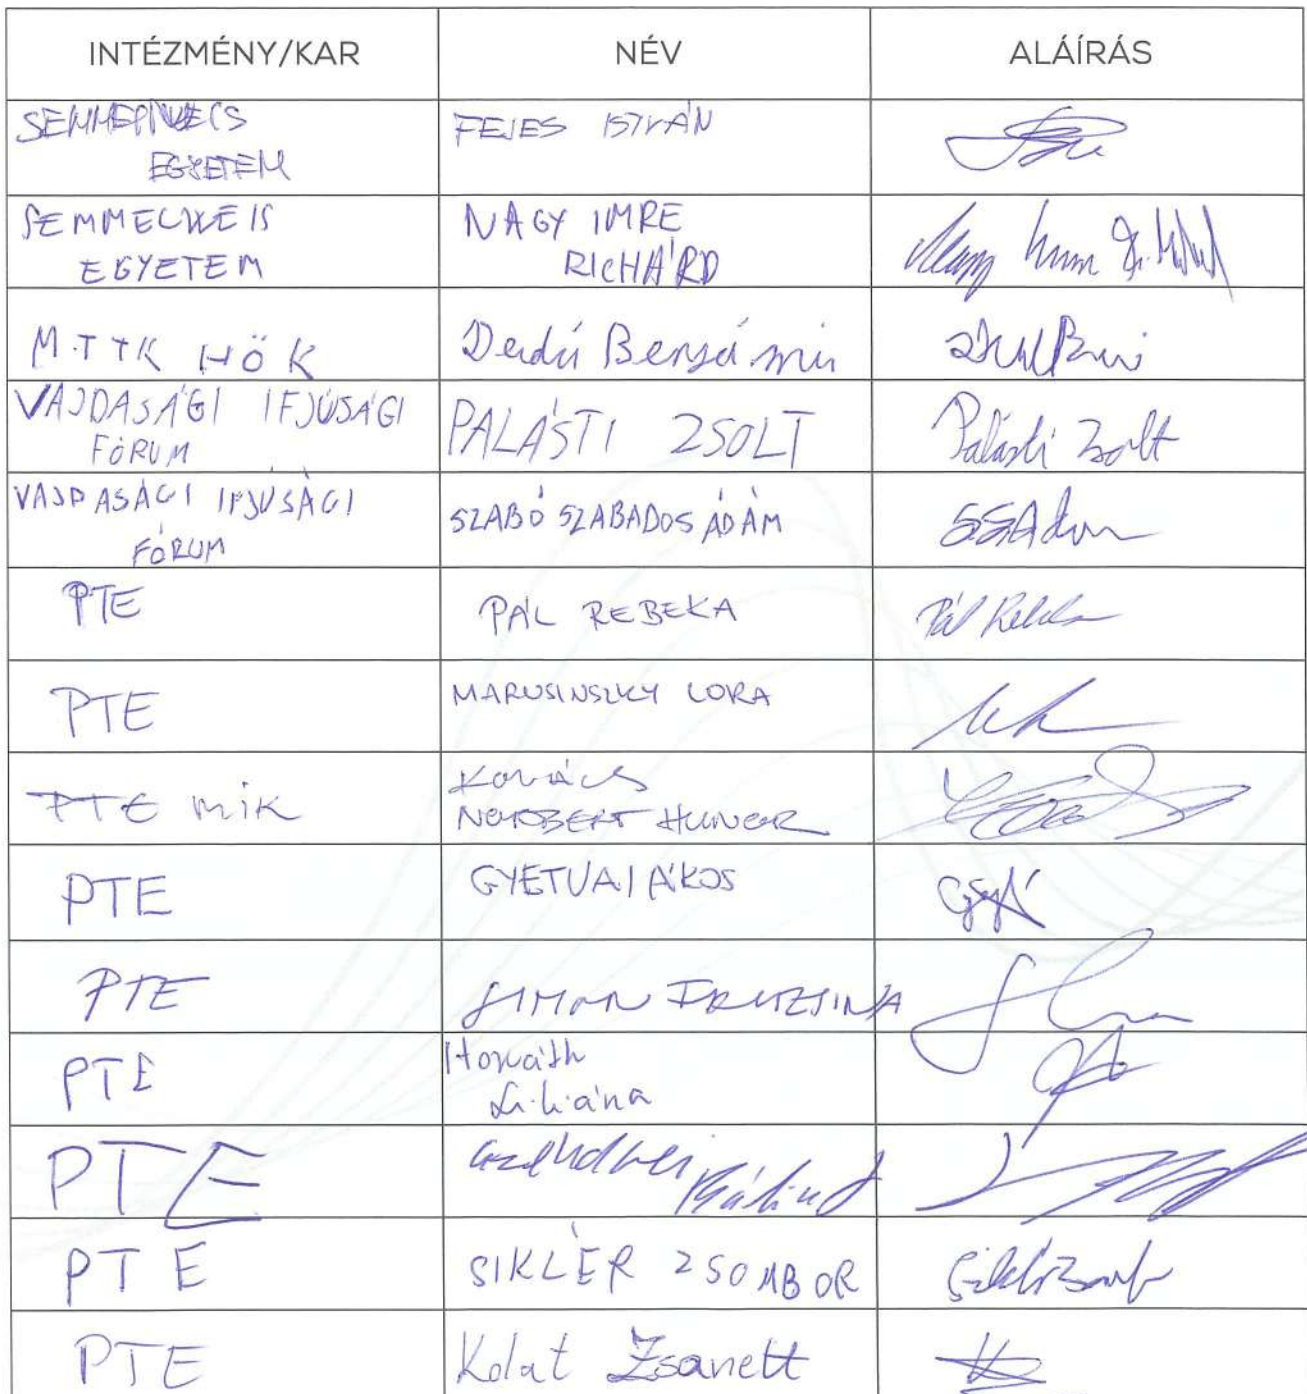 INTÉZMÉNY/KAR NÉV ALÁÍRÁS
SEMMELWEIS FEJES ISTVÁN
EGYETEM
SEMMELWEIS NAGY IMRE
EGYETEM RICHÁRD
MTTK HÖK
VAJDASÁGI IFJÚSÁGI PALÁSTI ZSOLT Palásti Zsolt
FÓRUM
VAJDASÁGI IFJÚSÁGI SZABÓ SZABADOS ÁDÁM SSZÁdám
FÓRUM
PTE PÁL REBEKA Pál Rebeka
PTE MARUSINSZKY LORA
PTE MIK KOVÁCS
NORBERT HUNOR
PTE GYETVAI ÁKOS
PTE SIMON FRUZSINA
PTE Horváth
Liliána
PTE Bálint
PTE SIKLÉR ZSOMBOR
PTE Kolat Zsanett